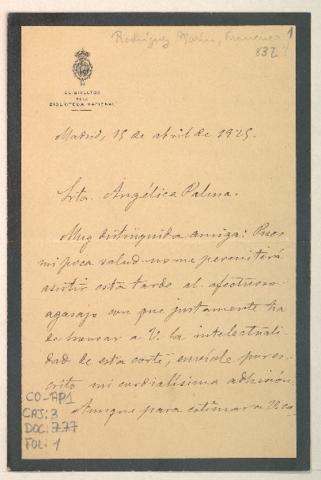 Rodríguez Marín, Francisco 1
832
EL DIRECTOR
DE LA
BIBLIOTECA NACIONAL
Madrid, 15 de abril de 1925.
Srta. Angélica Palma.
Muy distinguida amiga: Pues
mi poca salud no me permitirá
asistir esta tarde al afectuoso
agasajo con que justamente ha
de honrar a V. la intelectuali-
dad de esta corte, envíole por es-
crito mi cordialísima adhesión.
Aunque para estimar a V. co
CO-AP1
CAJ: 3
DOC: 777
FOL: 1